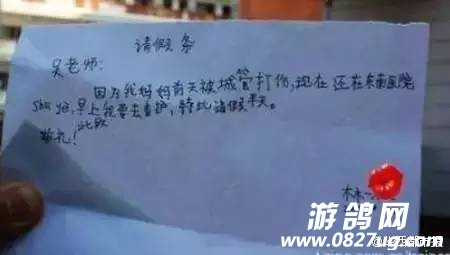 请假条
吴老师:
因为我妈妈前天被城管打伤,现在还在东南医院
shu ye,早上我要去看护,特此请假半天。
此致
敬礼!
林
游鸽网
www.0827ug.com